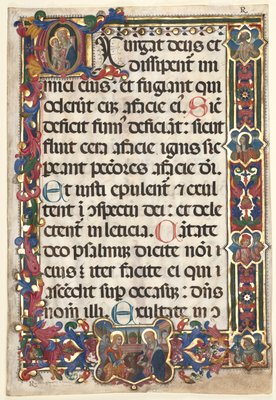 R.
Exurgat deus et
dissipent̄ ini
mici eius: et fugiant qui
oderūt eū: a facie ei. Sic̄
deficit fum' deficiāt: sicut
fluit cera a facie ignis sic
peant pctōres a facie dī.
Et iusti epulent̄ ⁊ exul
tent ī ɔspectu dei: et dele
ctentur in leticia. Cātate
deo psalmum dicite nōi
eius: iter facite ei qui
ascēdit sup occasum: dn̄s
nom̄ illi. Exultate in ɔ